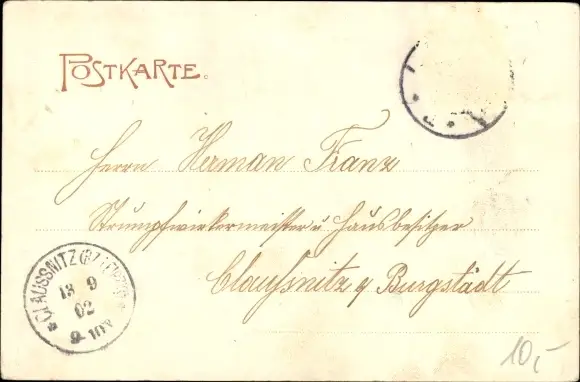 POSTKARTE.
Herrn Herman Franz
Strumpfwirkermeister u Hausbesitzer
Claußnitz b/ Burgstädt
CLAUSSNITZ (BZ. LEIPZIG)
13 9
02
9-10V
10,-